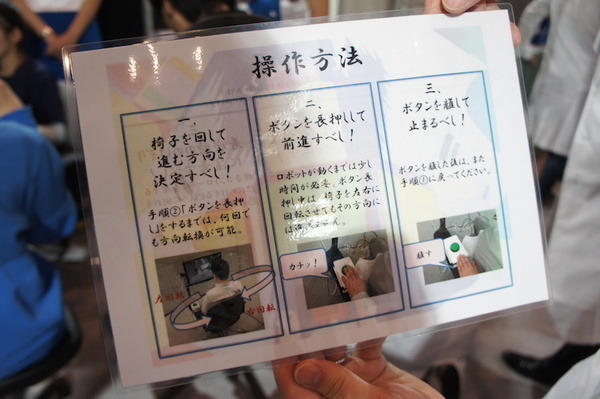 操作方法
一、
椅子を回して
進む方向を
決定すべし！
手順②「ボタンを長押
し」をするまでは、何回で
も方向転換が可能。
左回転
右回転
二、
ボタンを長押しして
前進すべし！
ロボットが動くまでは少し
時間が必要。ボタン長
押し中は、椅子を左右に
回転させてもその方向に
カチッ！
三、
ボタンを離して
止まるべし！
ボタンを離した後は、また
手順①に戻ってください。
離す